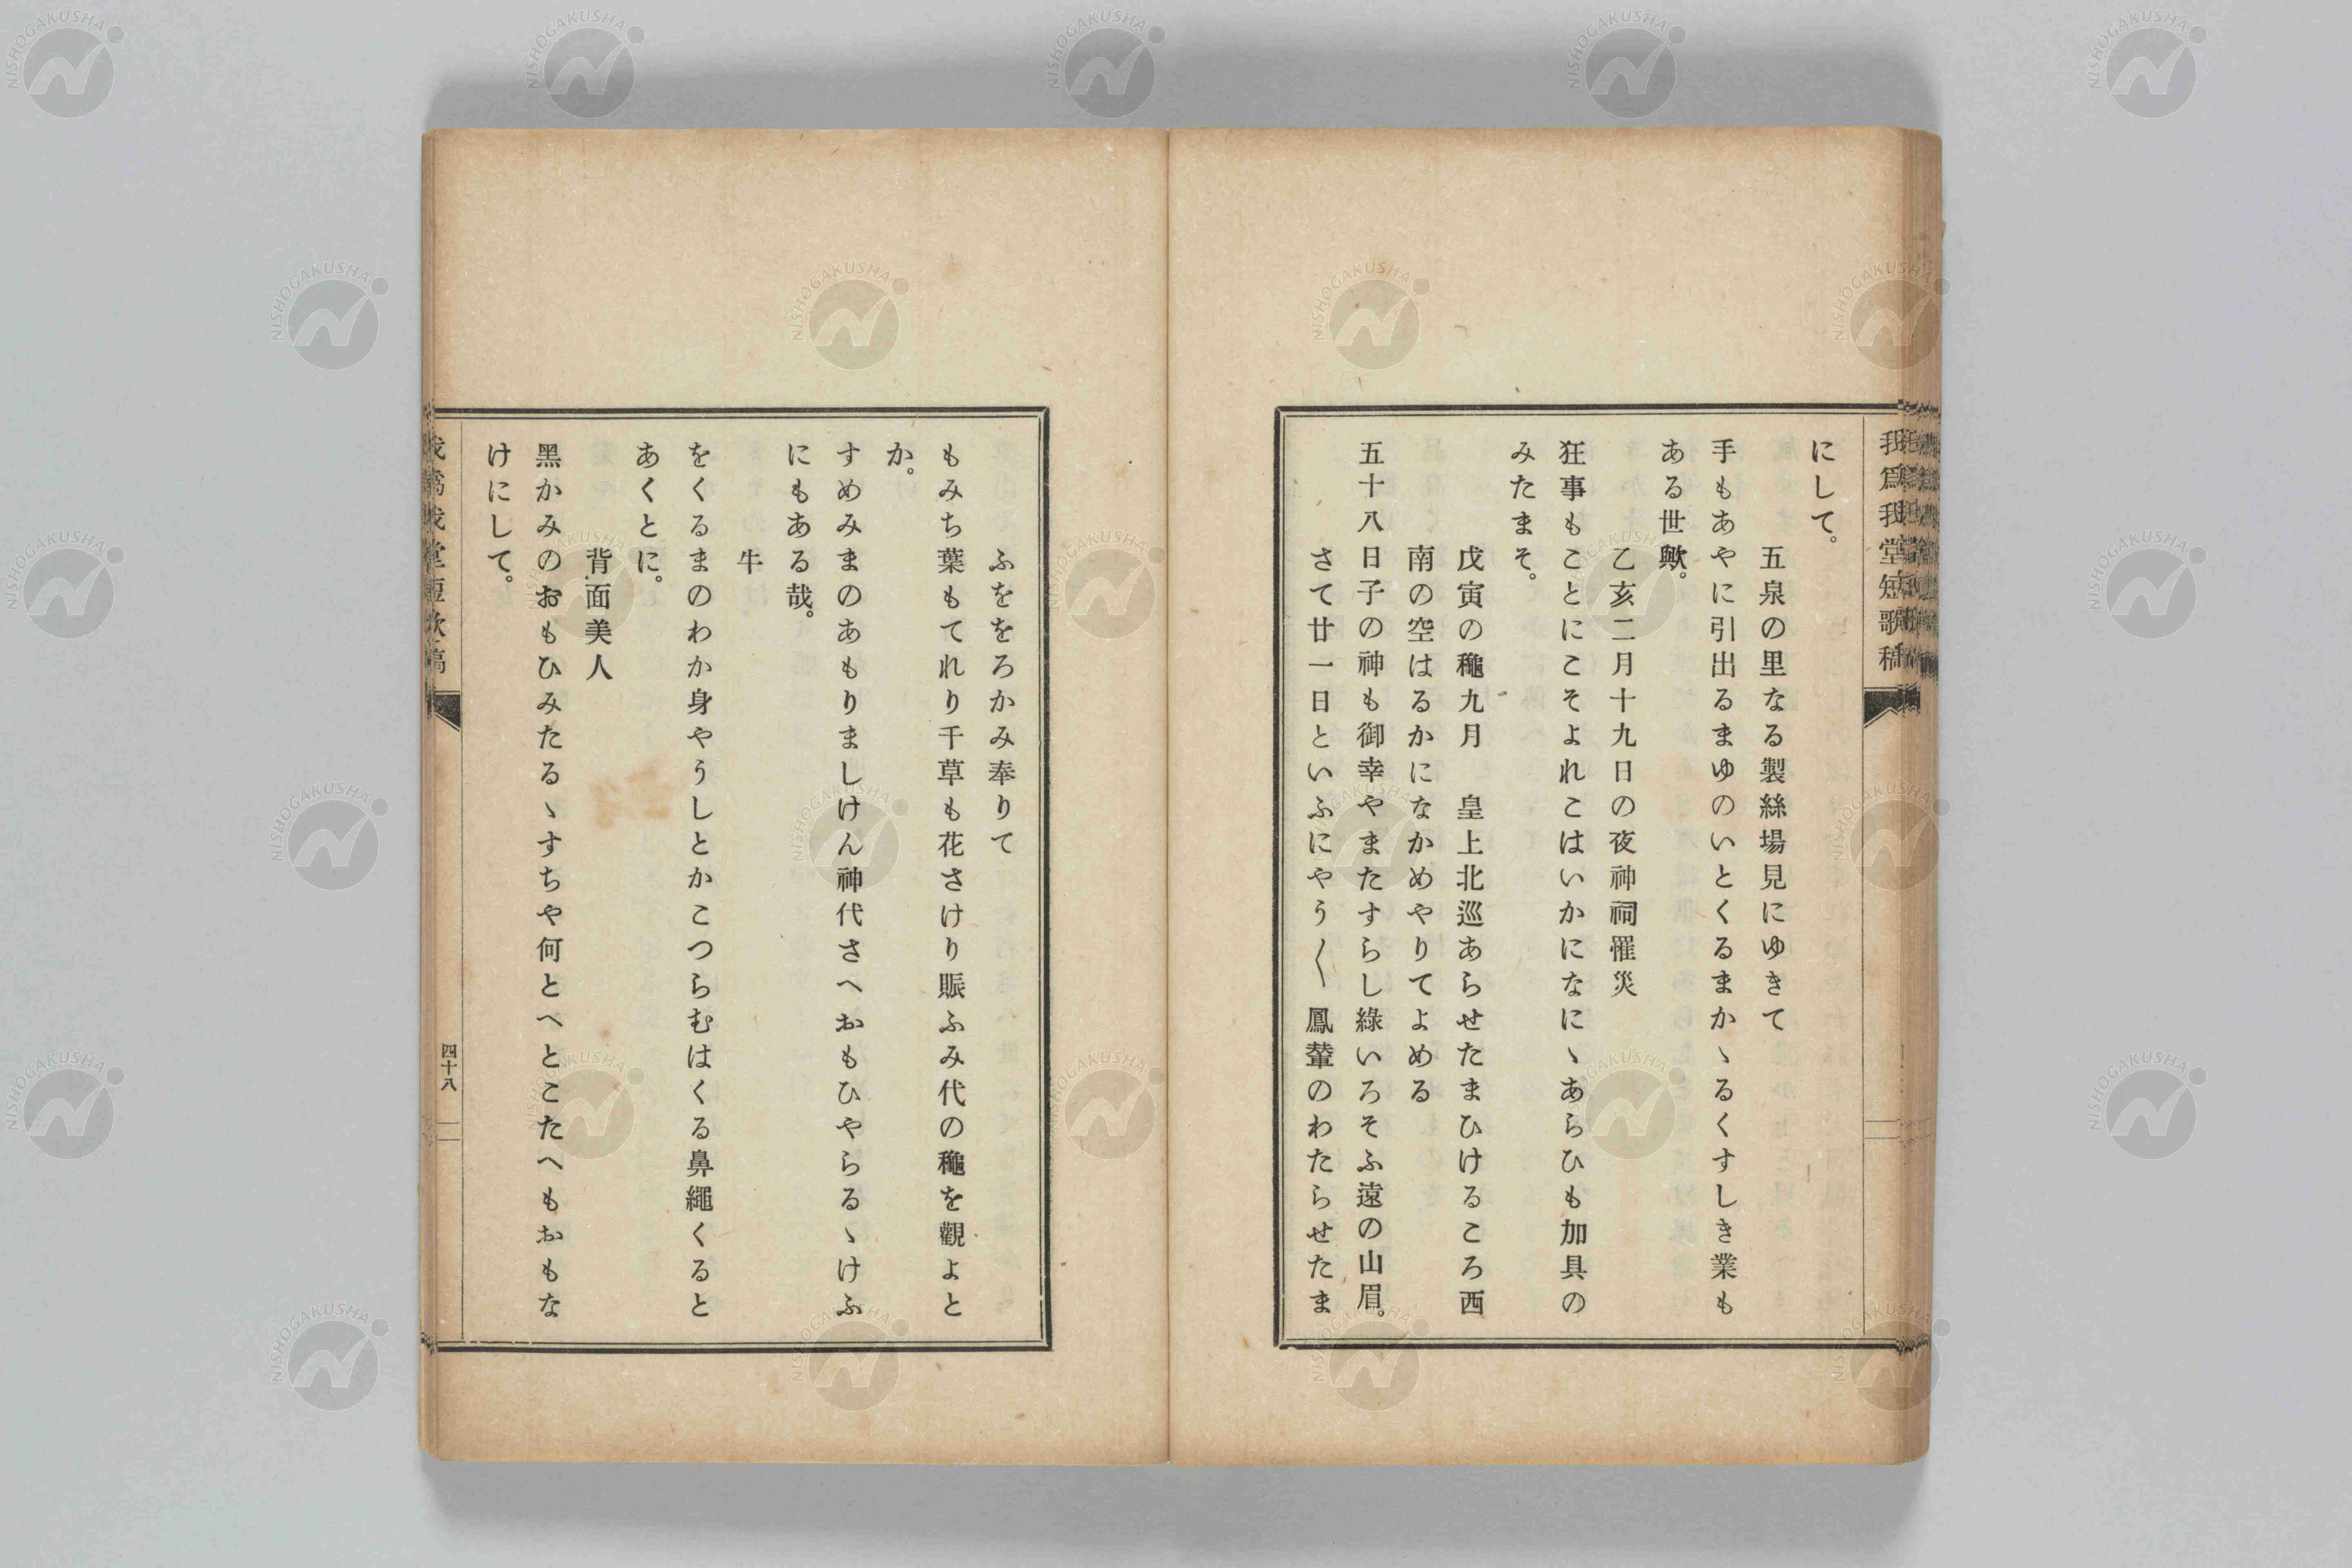 我爲我堂短歌稿
にして。
五泉の里なる製絲場見にゆきて
手もあやに引出るまゆのいとくるまかゝるくすしき業も
ある世歟。
乙亥二月十九日の夜神祠罹災
狂事もことにこそよれこはいかになにゝあらひも加具の
みたまそ。
戊寅の龝九月　皇上北巡あらせたまひけるころ西
南の空はるかになかめやりてよめる
五十八日子の神も御幸やまたすらし綠いろそふ遠の山眉。
さて廿一日といふにやう〳〵鳳輦のわたらせたま
ふををろかみ奉りて
もみち葉もてれり千草も花さけり賑ふみ代の龝を觀よと
か。
すめみまのあもりましけん神代さへおもひやらるゝけふ
にもある哉。
牛
をくるまのわか身やうしとかこつらむはくる鼻繩くると
あくとに。
背面美人
黑かみのおもひみたるゝすちや何とへとこたへもおもな
けにして。
我爲我堂短歌稿
四十八
NISHOGAKUSHA